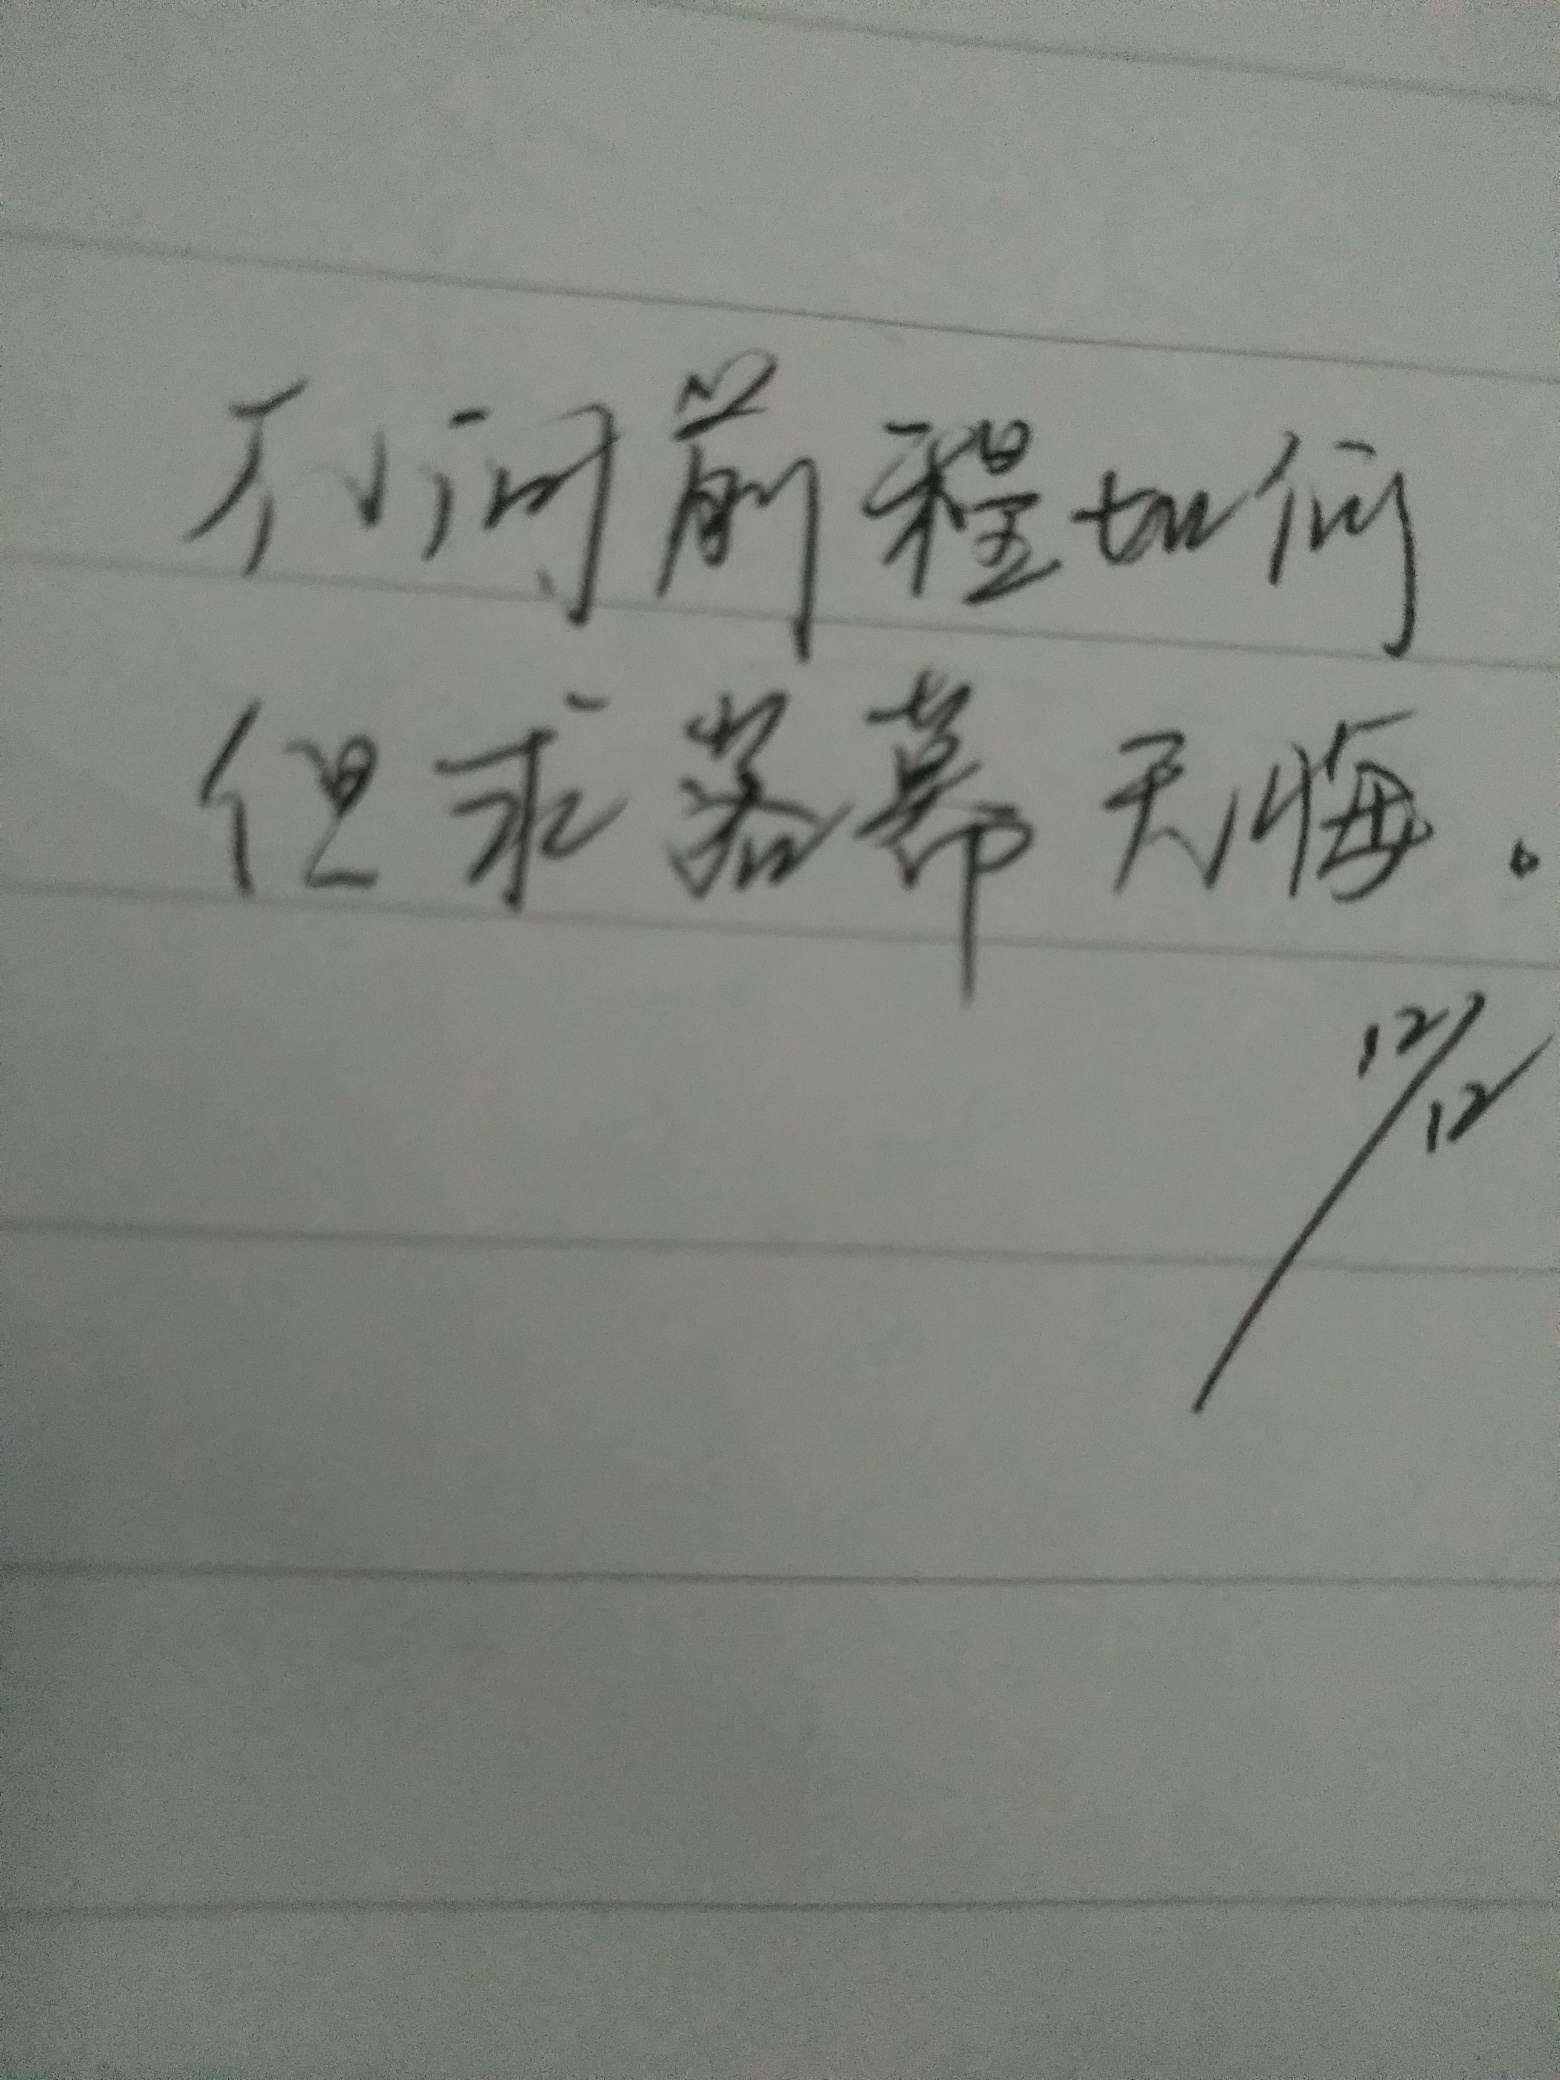 不问前程如何
但求落幕无悔.
12/12